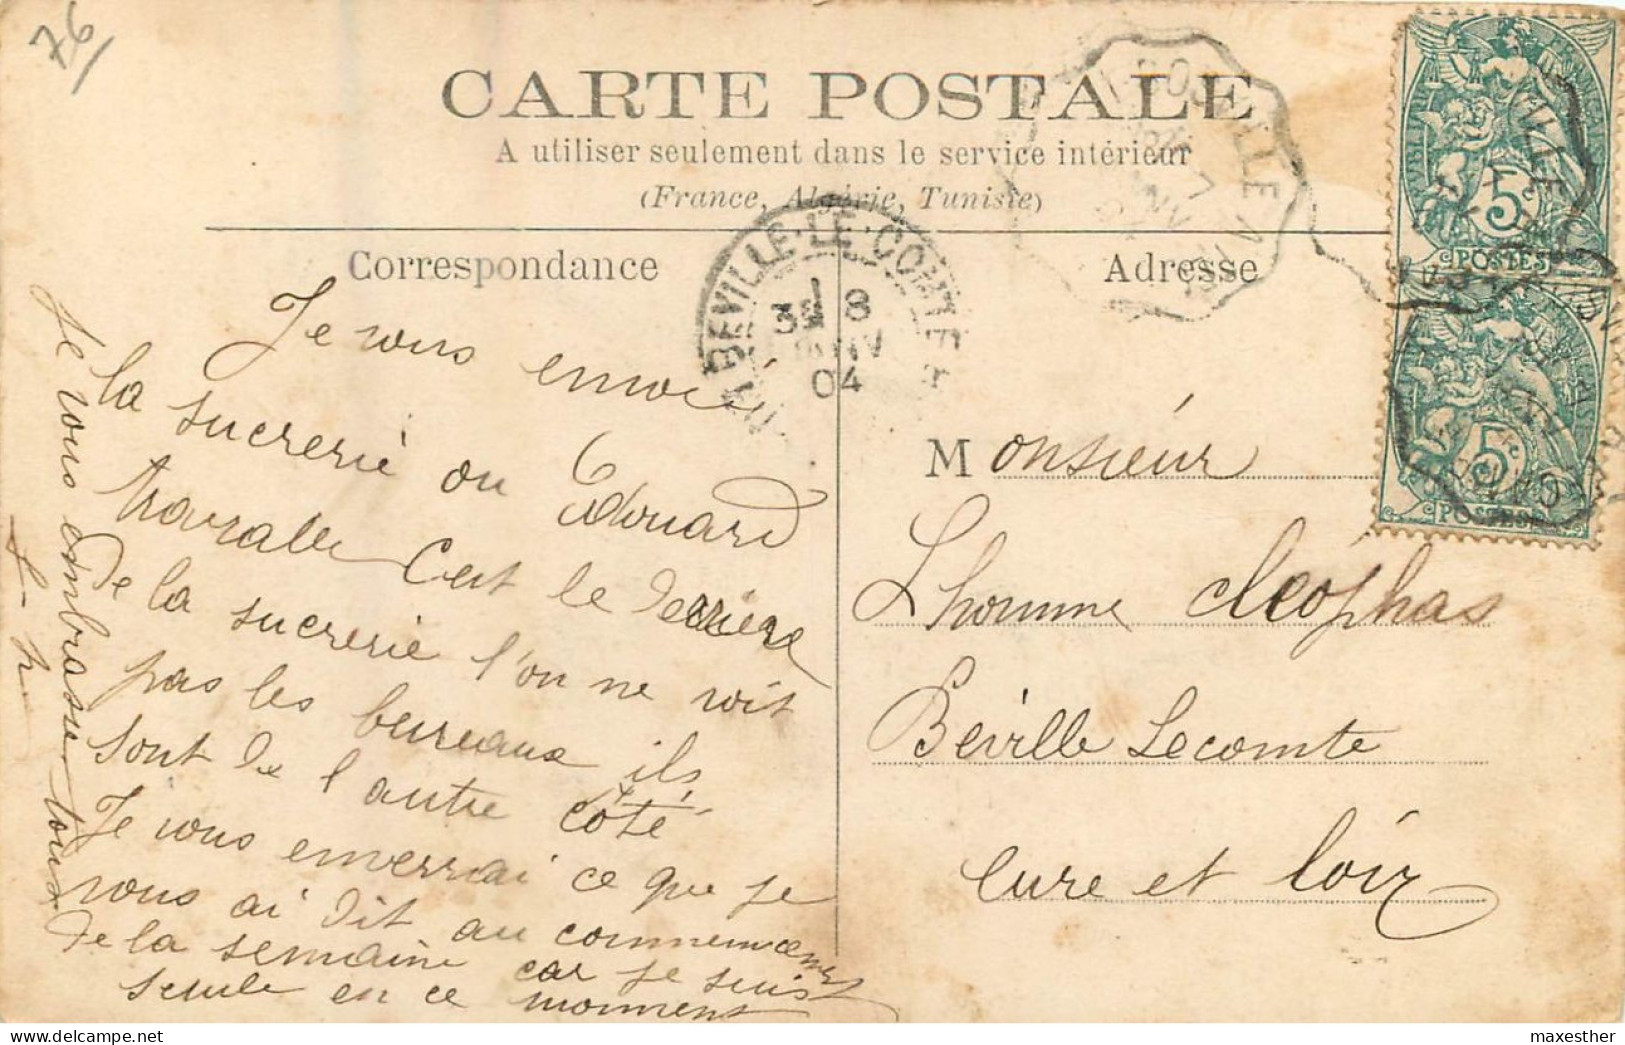 76
CARTE POSTALE
A utiliser seulement dans le service intérieur
(France, Algérie, Tunisie)
Correspondance
Adresse
BEVILLE-LE-COMTE
8
04
5c
POSTES
5c
POSTES
Je vous envoie
la sucrerie ou Edouard
travaille C'est le derriere
de la sucrerie l'on ne voit
pas les bureaux ils
sont de l'autre côté
Je vous enverrai ce que je
vous ai dit au commencement
de la semaine car je suis
seule en ce moment
Je vous embrasse tous
Monsieur
Lhomme cléophas
Béville Lecomte
Eure et loir
maxesther